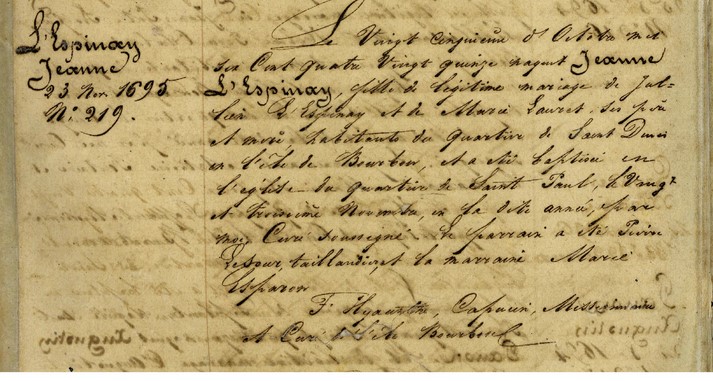 L'Espinay
Jeanne
23 Nov. 1695
N.º 219.
Le Vingt cinquième d'Octobre mil
six Cent quatre Vingt quinze naquit Jeanne
L'Espinay, fille de légitime mariage de Jul-
lien L'Espinay et de Marie Lauret, ses père
et mère habitants du quartier de Saint Denis
en l'île de Bourbon, et a été baptisée en
l'église du quartier de Saint Paul, le Vingt
et troisième Novembre, en la dite année, par
moi, Curé soussigné. Le parrain a été Pierre
taillandier, et la marraine Marie
Esparon
F. Hyacinthe, Capucin, Missionnaire
et Curé de l'île Bourbon